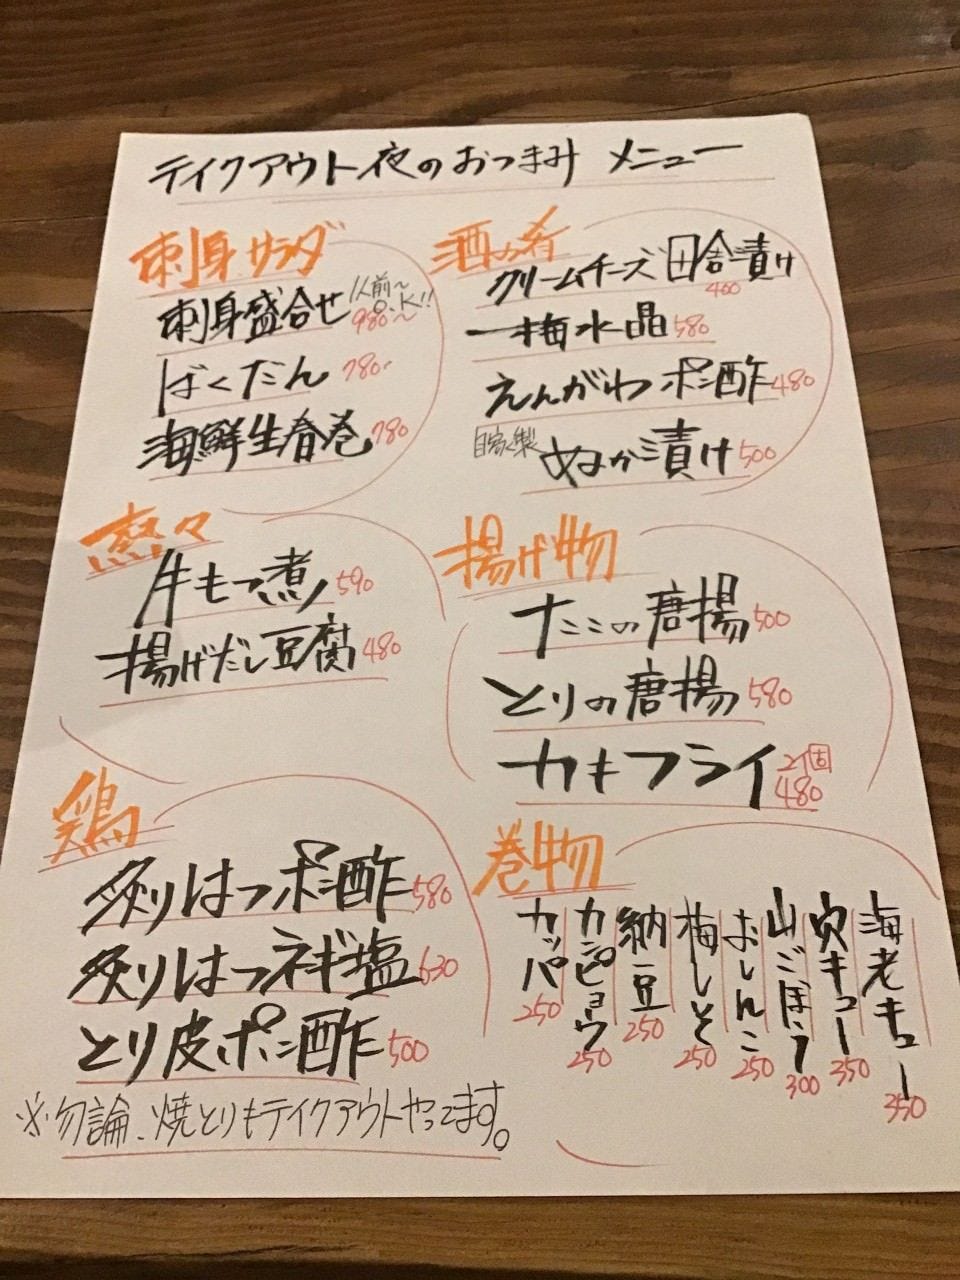 テイクアウト夜のおつまみ メニュー
刺身サラダ
刺身盛合せ 1人前〜O.K!! 980〜
ばくだん 780-
海鮮生春巻 780
酒の肴
クリームチーズ田舎漬け 400
梅水晶 580
えんがわポン酢 480
自家製 ぬか漬け 500
煮々
牛もつ煮 590
揚げだし豆腐 480
揚げ物
たこの唐揚 500
とりの唐揚 580
カキフライ 2個 480
鶏
炙りはつポン酢 580
炙りはつネギ塩 630
とり皮ポン酢 500
巻物
カッパ 250
カンピョウ 250
納豆 250
梅しそ 250
おしんこ 250
山ごぼう 300
穴キュー 350
海老キュー 350
※勿論、焼とりもテイクアウトやってます。